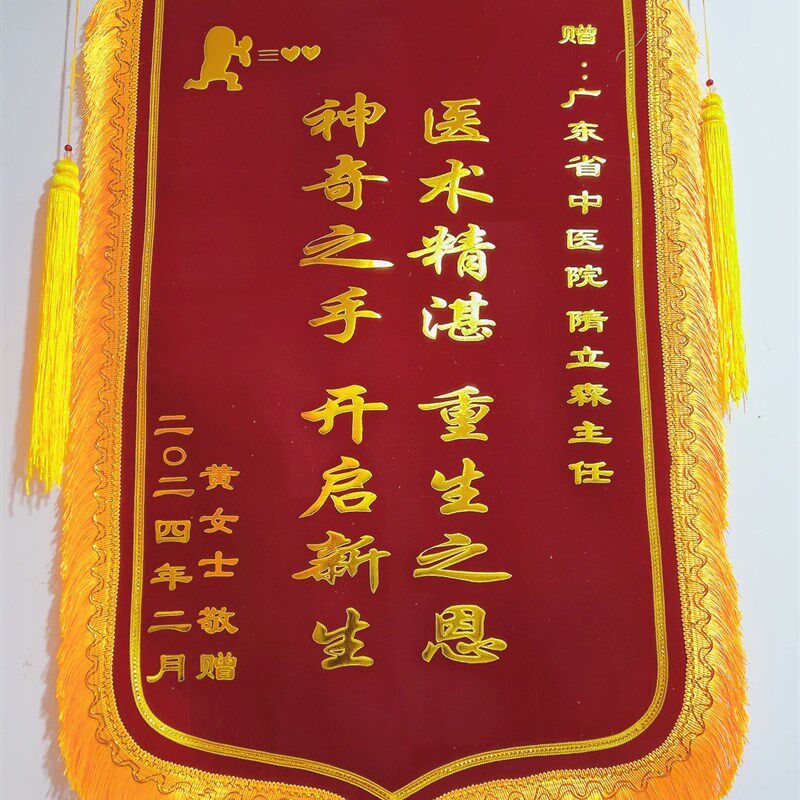 赠：广东省中医院 隋立森主任
医术精湛 重生之恩
神奇之手 开启新生
黄女士敬赠
二〇二四年二月